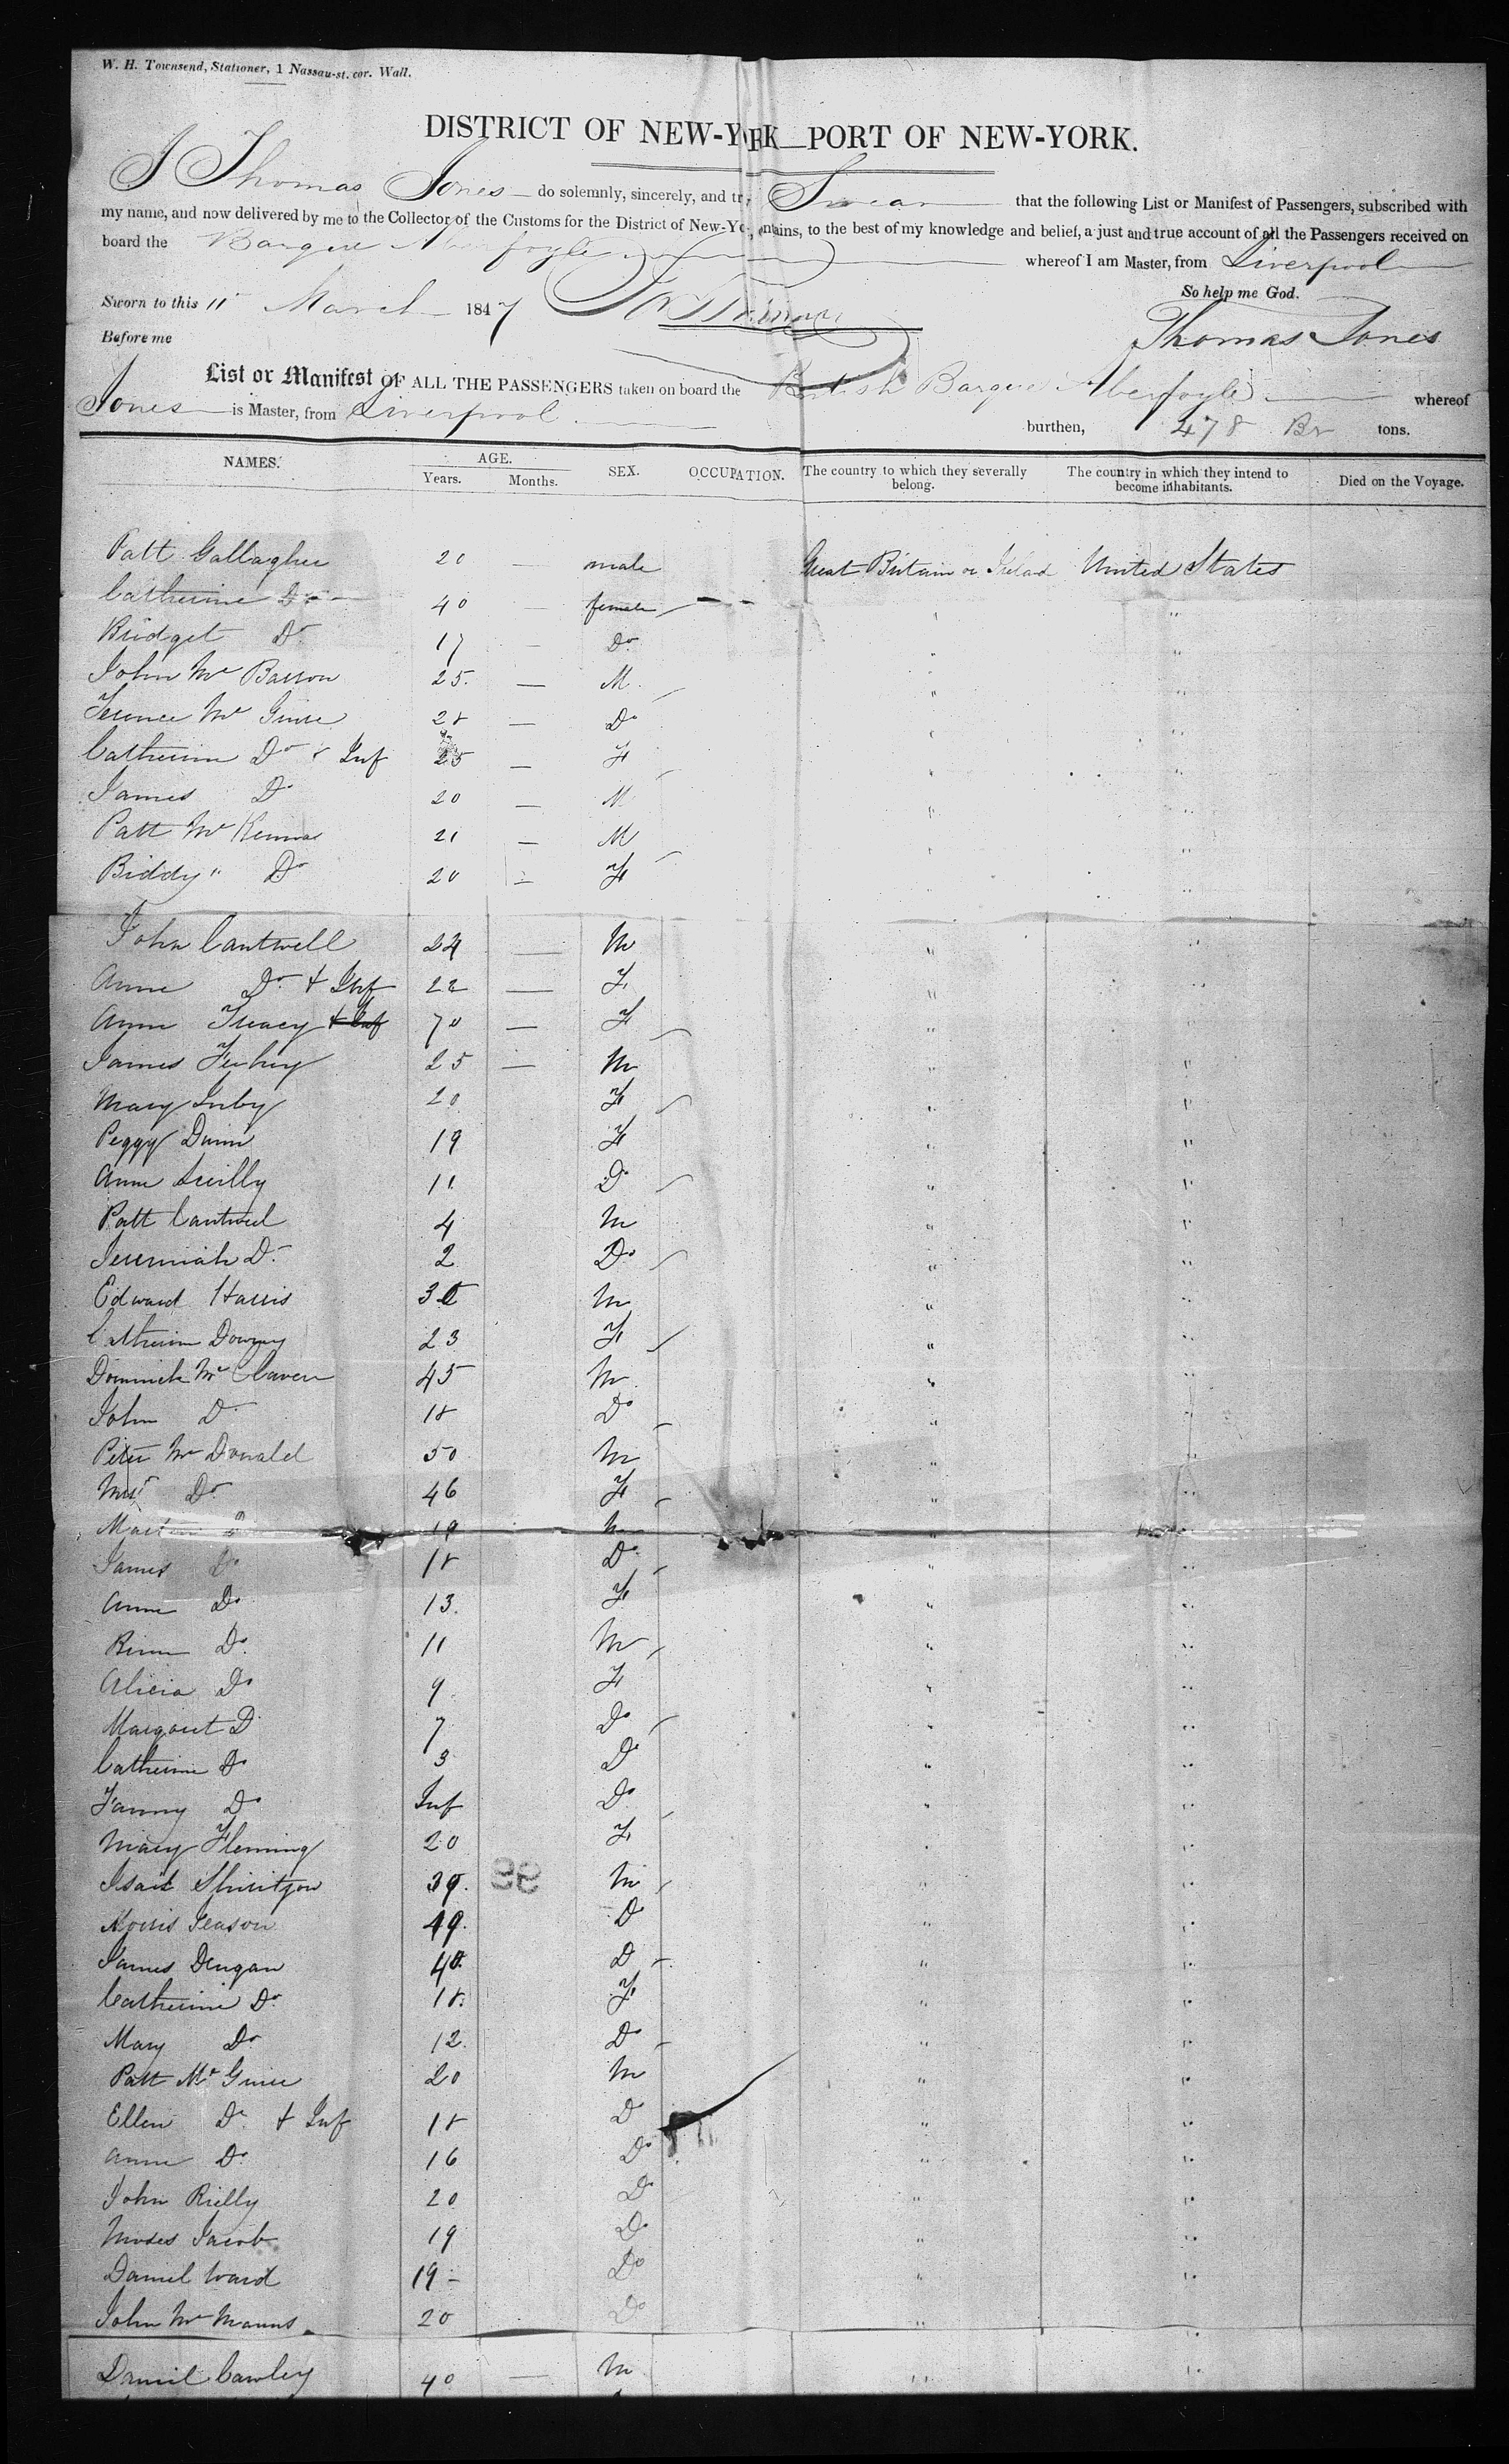 W. H. Townsend, Stationer, 1 Nassau-st. cor. Wall.
DISTRICT OF NEW-Y RK—PORT OF NEW-YORK.
I Thomas Jones do solemnly, sincerely, and tr Swear that the following List or Manifest of Passengers, subscribed with
my name, and now delivered by me to the Collector of the Customs for the District of New-Yo , ntains, to the best of my knowledge and belief, a just and true account of all the Passengers received on
board the Barque Aberfoyle whereof I am Master, from Liverpool
So help me God.
Sworn to this 11 March 1847
Thomas Jones
Before me
List or Manifest OF ALL THE PASSENGERS taken on board the British Barque Aberfoyle whereof
Jones is Master, from Liverpool burthen, 478 Br tons.
NAMES. AGE. Years. Months. SEX. OCCUPATION. The country to which they severally belong. The country in which they intend to become inhabitants. Died on the Voyage.
Patt Gallagher 20 — male Great Britain or Ireland United States
Catherine Do 40 — female " "
Bridget Do 17 — Do " "
John Mc Barron 25 — M " "
Terence Mc Guire 28 — Do " "
Catherine Do & Inf 25 — F " "
James Do 20 — M " "
Patt Mc Kenna 21 — M " "
Biddy " Do 20 — F " "
John Cantwell 24 — M " "
Anne Do + Inf 22 — F " "
Ann Treacy + Inf 70 — F " "
James 25 — M " "
Mary 20 F " "
Peggy Dunn 19 F " "
Ann 11 Do " "
Patt Cantwel 4 M " "
Jeremiah Do 2 Do " "
Edward Harris M " "
Catherine Downey 23 F " "
Dominick Mc Claven 45 M " "
John Do 18 Do " "
Peter Mc Donald 50 M " "
Mrs Do 46 F " "
19 M " "
James Do 18 Do " "
Anne Do 13 F " "
Do 11 M " "
Alicia Do 9 F " "
Margaret Do 7 Do " "
Catherine Do 3 Do " "
Fanny Do Inf Do " "
Mary Fleming 20 F " "
39 M " "
Morris 49 Do " "
James Dengan 40 D " "
Catherine Do 18 F " "
Mary Do 12 Do " "
Patt Mc Guire 20 M " "
Ellen Do + Inf 18 D " "
Anne Do 16 Do " "
John Rielly 20 Do " "
Moses Jacob 19 Do " "
Daniel Ward 19 - Do " "
John Mc Manus 20 Do " "
Daniel Cawley 40 — M " "